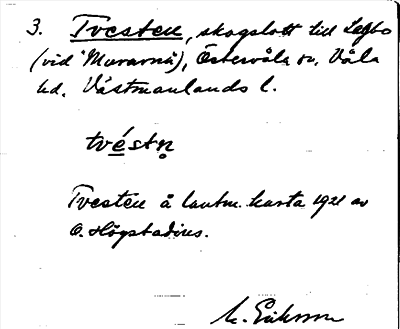 3. Tvesten, skogslott till Legbo
(vid Murarna), Östervåla sn. Våla
hd. Västmanlands l.
tvéstn̥
Tvesten å lantm. karta 1921 av
O. Högstadius.
M. Eriksson